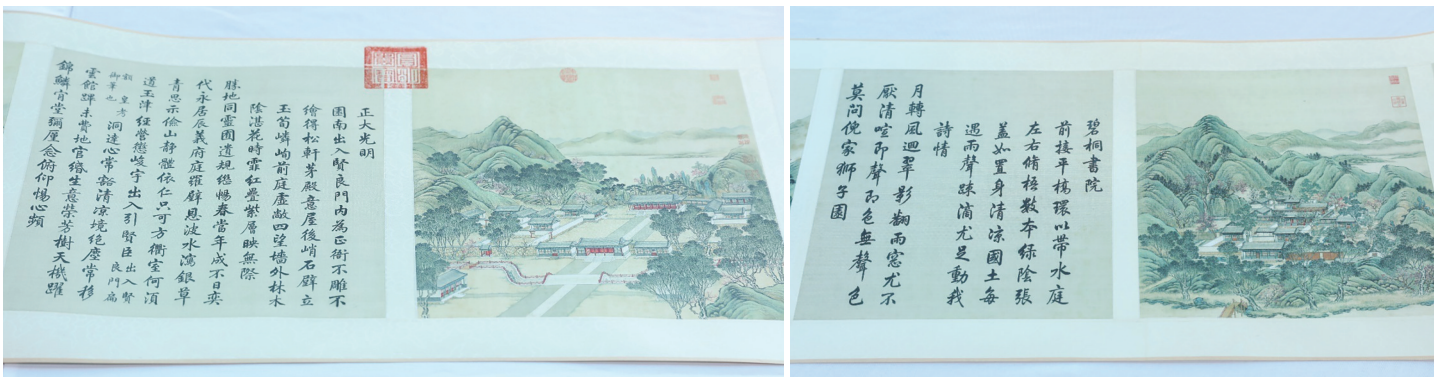 正大光明
園南出入賢良門內為正衙不雕不
繪得松軒茅殿意屋後峭石壁立
玉筍嶙峋前庭虛敞四望牆外林木
陰湛花時霏紅疊紫層映無際
勝地同靈囿遺規繼暢春當年成不日奕
代永居辰義府庭羅璧恩波水瀉銀草
青思示儉山靜體依仁只可方衢室何須
道玉津經營懋峻宇出入引賢臣出入賢良門為
額皇考御筆也洞達心常豁清涼境絕塵常移
雲館蹕未費地官緡生意榮芳樹天機躍
錦鱗肯堂彌厪念俯仰惕心頻
碧桐書院
前接平橋環以帶水庭
左右脩梧數本綠陰張
蓋如置身清涼國土每
遇雨聲疎滴尤足動我
詩情
月轉風迴翠影翻雨窗尤不
厭清喧即聲即色無聲色
莫問倪家獅子園